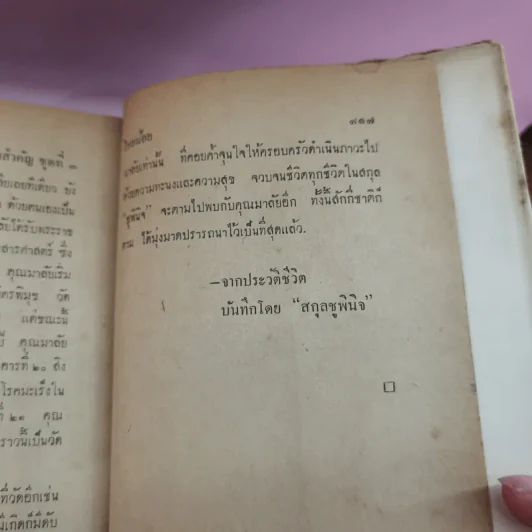 สำคัญ ชุดที่ ๓
เลยทีเดียว ยัง
ด้วยตนเองเป็น
ได้รับพระราช
สารศาสตร์ ซึ่ง
คุณมาลัยเริ่ม
วัด
แต่ขณะนี้
คุณมาลัย
ที่ ๒๐ ถึง
โรคมะเร็งใน
๒๑ คุณ
ราวนั้นเป็นวัด
ที่วัดอีกเช่น
ไทยน้อย ๙๑๗
มาลัยเท่านั้น ที่คอยค้ำจุนใจให้ครอบครัวดำเนินภาวะไป
ด้วยความทะนงและความสุข จวบจนชีวิตทุกชีวิตในสกุล
"ชูพินิจ" จะตามไปพบกับคุณมาลัยอีก ทั้งนี้สักกี่ชาติก็
ตาม ได้มุ่งมาดปรารถนาไว้เป็นที่สุดแล้ว.
—จากประวัติชีวิต
บันทึกโดย "สกุลชูพินิจ"